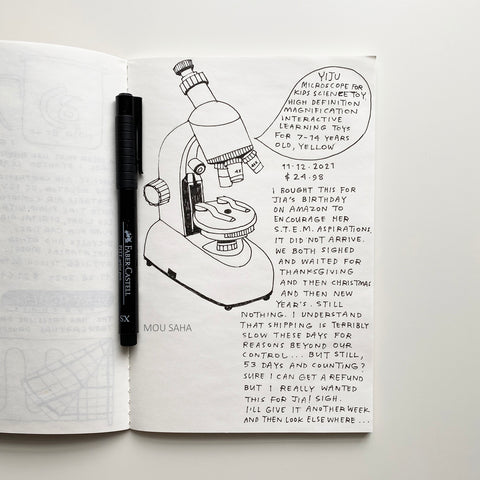 YIJU
MICROSCOPE FOR
KIDS SCIENCE TOY,
HIGH DEFINITION
MAGNIFICATION
INTERACTIVE
LEARNING TOYS
FOR 7-14 YEARS
OLD, YELLOW
11.12.2021
$24.98
I BOUGHT THIS FOR
JIA'S BIRTHDAY
ON AMAZON TO
ENCOURAGE HER
S.T.E.M. ASPIRATIONS.
IT DID NOT ARRIVE.
WE BOTH SIGHED
AND WAITED FOR
THANKSGIVING
AND THEN CHRISTMAS
AND THEN NEW
YEAR'S. STILL
NOTHING. I UNDERSTAND
THAT SHIPPING IS TERRIBLY
SLOW THESE DAYS FOR
REASONS BEYOND OUR
CONTROL... BUT STILL,
53 DAYS AND COUNTING?
SURE I CAN GET A REFUND
BUT I REALLY WANTED
THIS FOR JIA! SIGH.
I'LL GIVE IT ANOTHER WEEK
AND THEN LOOK ELSEWHERE...
MOU SAHA
FABER-CASTELL
XS